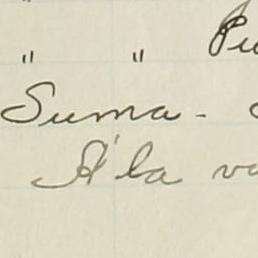 " " Pu
Suma -
A la va